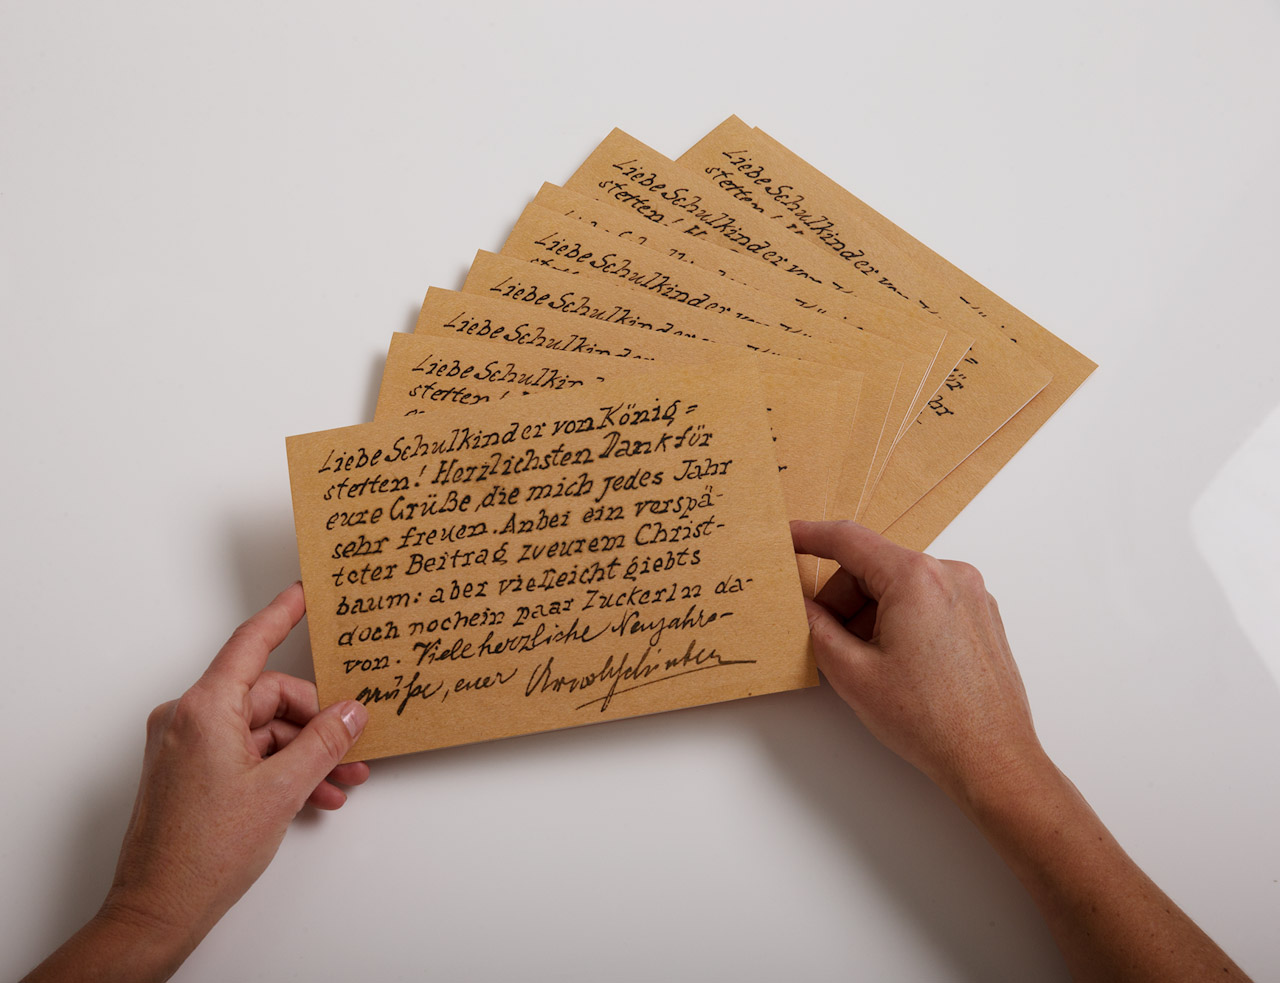 Liebe Schulkinder von
Liebe Schulkinder von
stetten!
Liebe Schulkinder von
stetten!
Liebe Schulkinder von
Liebe Schulkinder
Liebe Schulkinder
Liebe Schulkin
stetten!
Liebe Schulkinder von König=
stetten! Herzlichsten Dank für
eure Grüße, die mich jedes Jahr
sehr freuen. Anbei ein verspä-
teter Beitrag zu eurem Christ-
baum: aber vielleicht giebts
doch noch ein paar Zuckerln da-
von. Viele herzliche Neujahrs-
grüße, euer